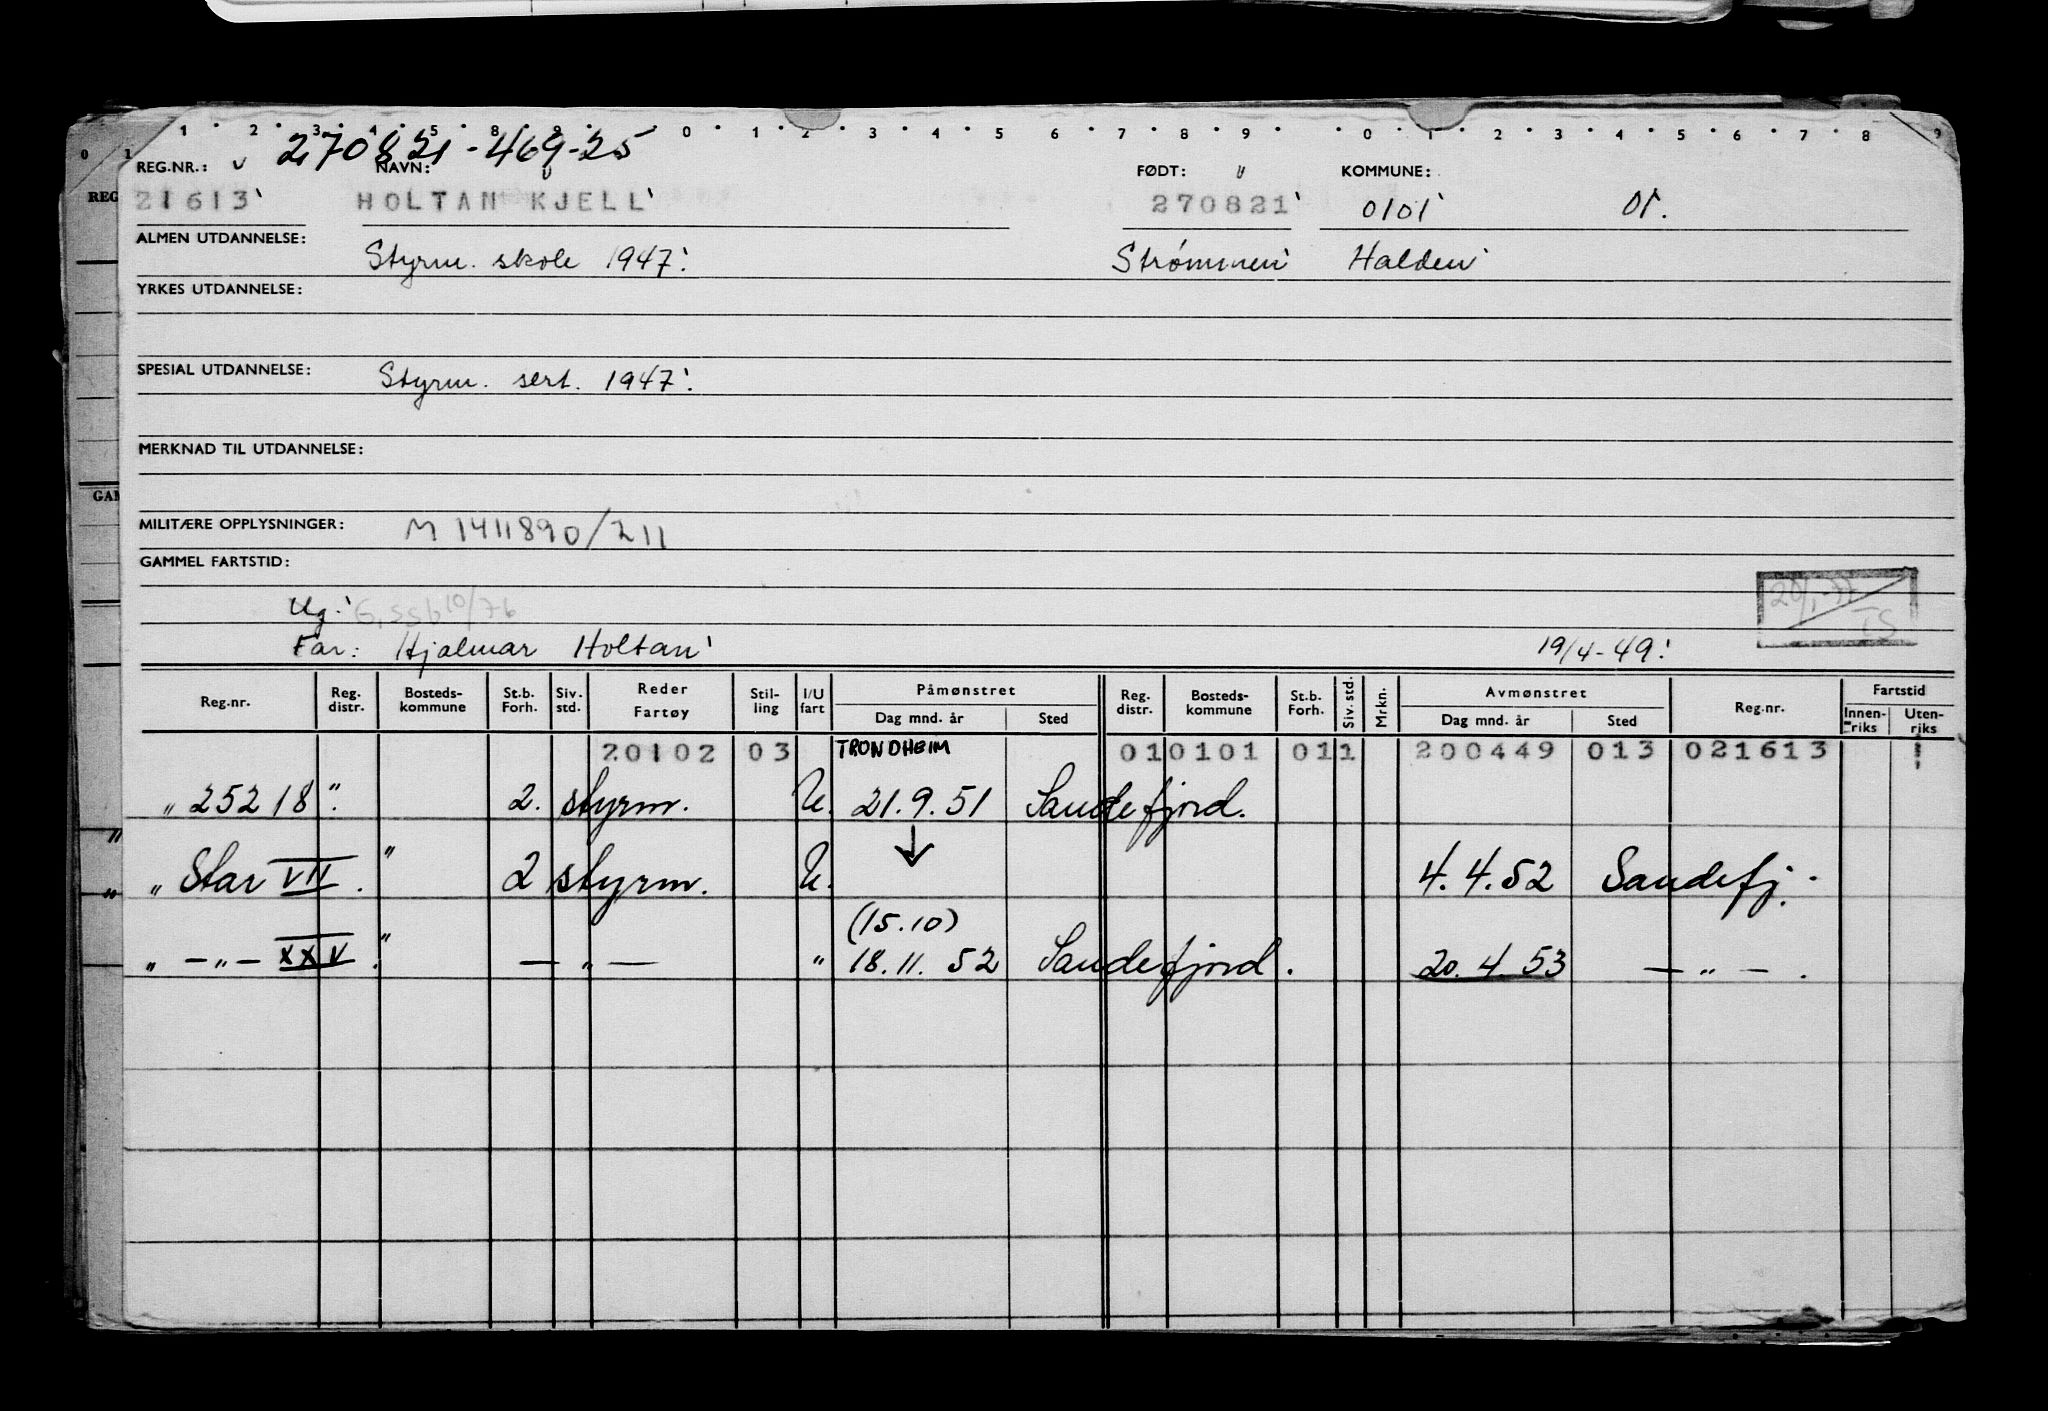 1 2 3 4 5 8 9 0 1 2 3 4 5 6 7 8 9 0 1 2 3 4 5 6 7 8 9
0 1
270821-469-25
REG.NR.: NAVN: FØDT: KOMMUNE:
REG
21613 HOLTAN KJELL 270821 0101 01.
ALMEN UTDANNELSE: Styrm. skole 1947. Strømmen Halden
YRKES UTDANNELSE:
SPESIAL UTDANNELSE: Styrm. sert. 1947.
MERKNAD TIL UTDANNELSE:
GAM
MILITÆRE OPPLYSNINGER: M 1411890/211
GAMMEL FARTSTID:
Ug.
Far: Hjalmar Holtan 19/4-49.
Reg.nr. Reg. distr. Bosteds- kommune St.b. Forh. Siv. std. Reder Fartøy Stil- ling I/U fart Påmønstret Dag mnd. år Sted Reg. distr. Bosteds- kommune St.b. Forh. Siv. std. Mrkn. Avmønstret Dag mnd. år Sted Reg.nr. Fartstid Innen- riks Uten- riks
20102 03 TRONDHEIM 010101 011 200449 013 021613
" 25218 ". 2. styrm. U. 21.9.51 Sandefjord.
" Star VII ". 2 styrm. U. ↓ 4.4.52 Sandefj.
(15.10)
" — " — XXV ". — " — " 18.11.52 Sandefjord. 20.4.53 — " — .